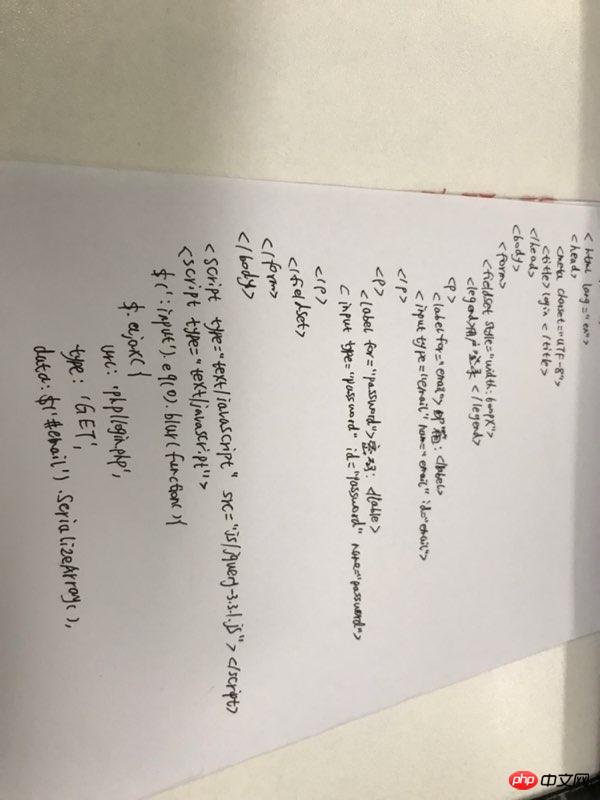 <html lang="en">
<head>
<meta charset="UTF-8">
<title>login</title>
</head>
<body>
<form>
<fieldset style="width:600px">
<legend>用户登录</legend>
<p>
<label for="email">邮箱:</label>
<input type="email" name="email" id="email">
</p>
<p>
<label for="password">密码:</lable>
<input type="password" id="password" name="password">
</p>
</fieldset>
</form>
</body>
<script type="text/javascript" src="js/jquery-3.3.1.js"></script>
<script type="text/javascript">
$(':input').eq(0).blur(function(){
$.ajax({
url: 'php/login.php',
type: 'GET',
data: $('#email').serializeArray(),
php 中文网